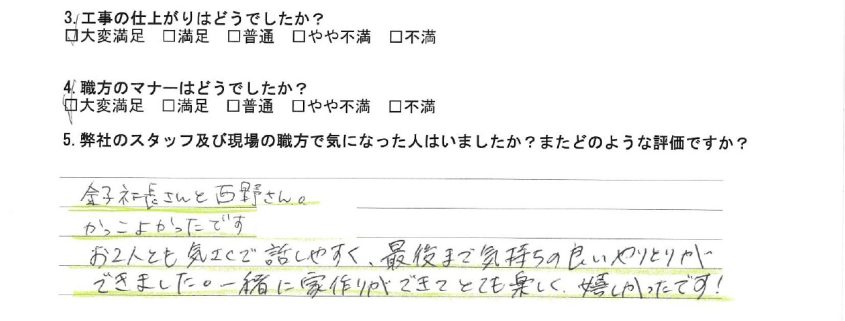 3. 工事の仕上がりはどうでしたか？
□大変満足 □満足 □普通 □やや不満 □不満
4. 職方のマナーはどうでしたか？
□大変満足 □満足 □普通 □やや不満 □不満
5. 弊社のスタッフ及び現場の職方で気になった人はいましたか？またどのような評価ですか？
金子社長さんと西野さん。
かっこよかったです
お2人とも気さくで話しやすく、最後まで気持ちの良いやりとりが
できました。一緒に家作りができてとても楽しく、嬉しかったです！